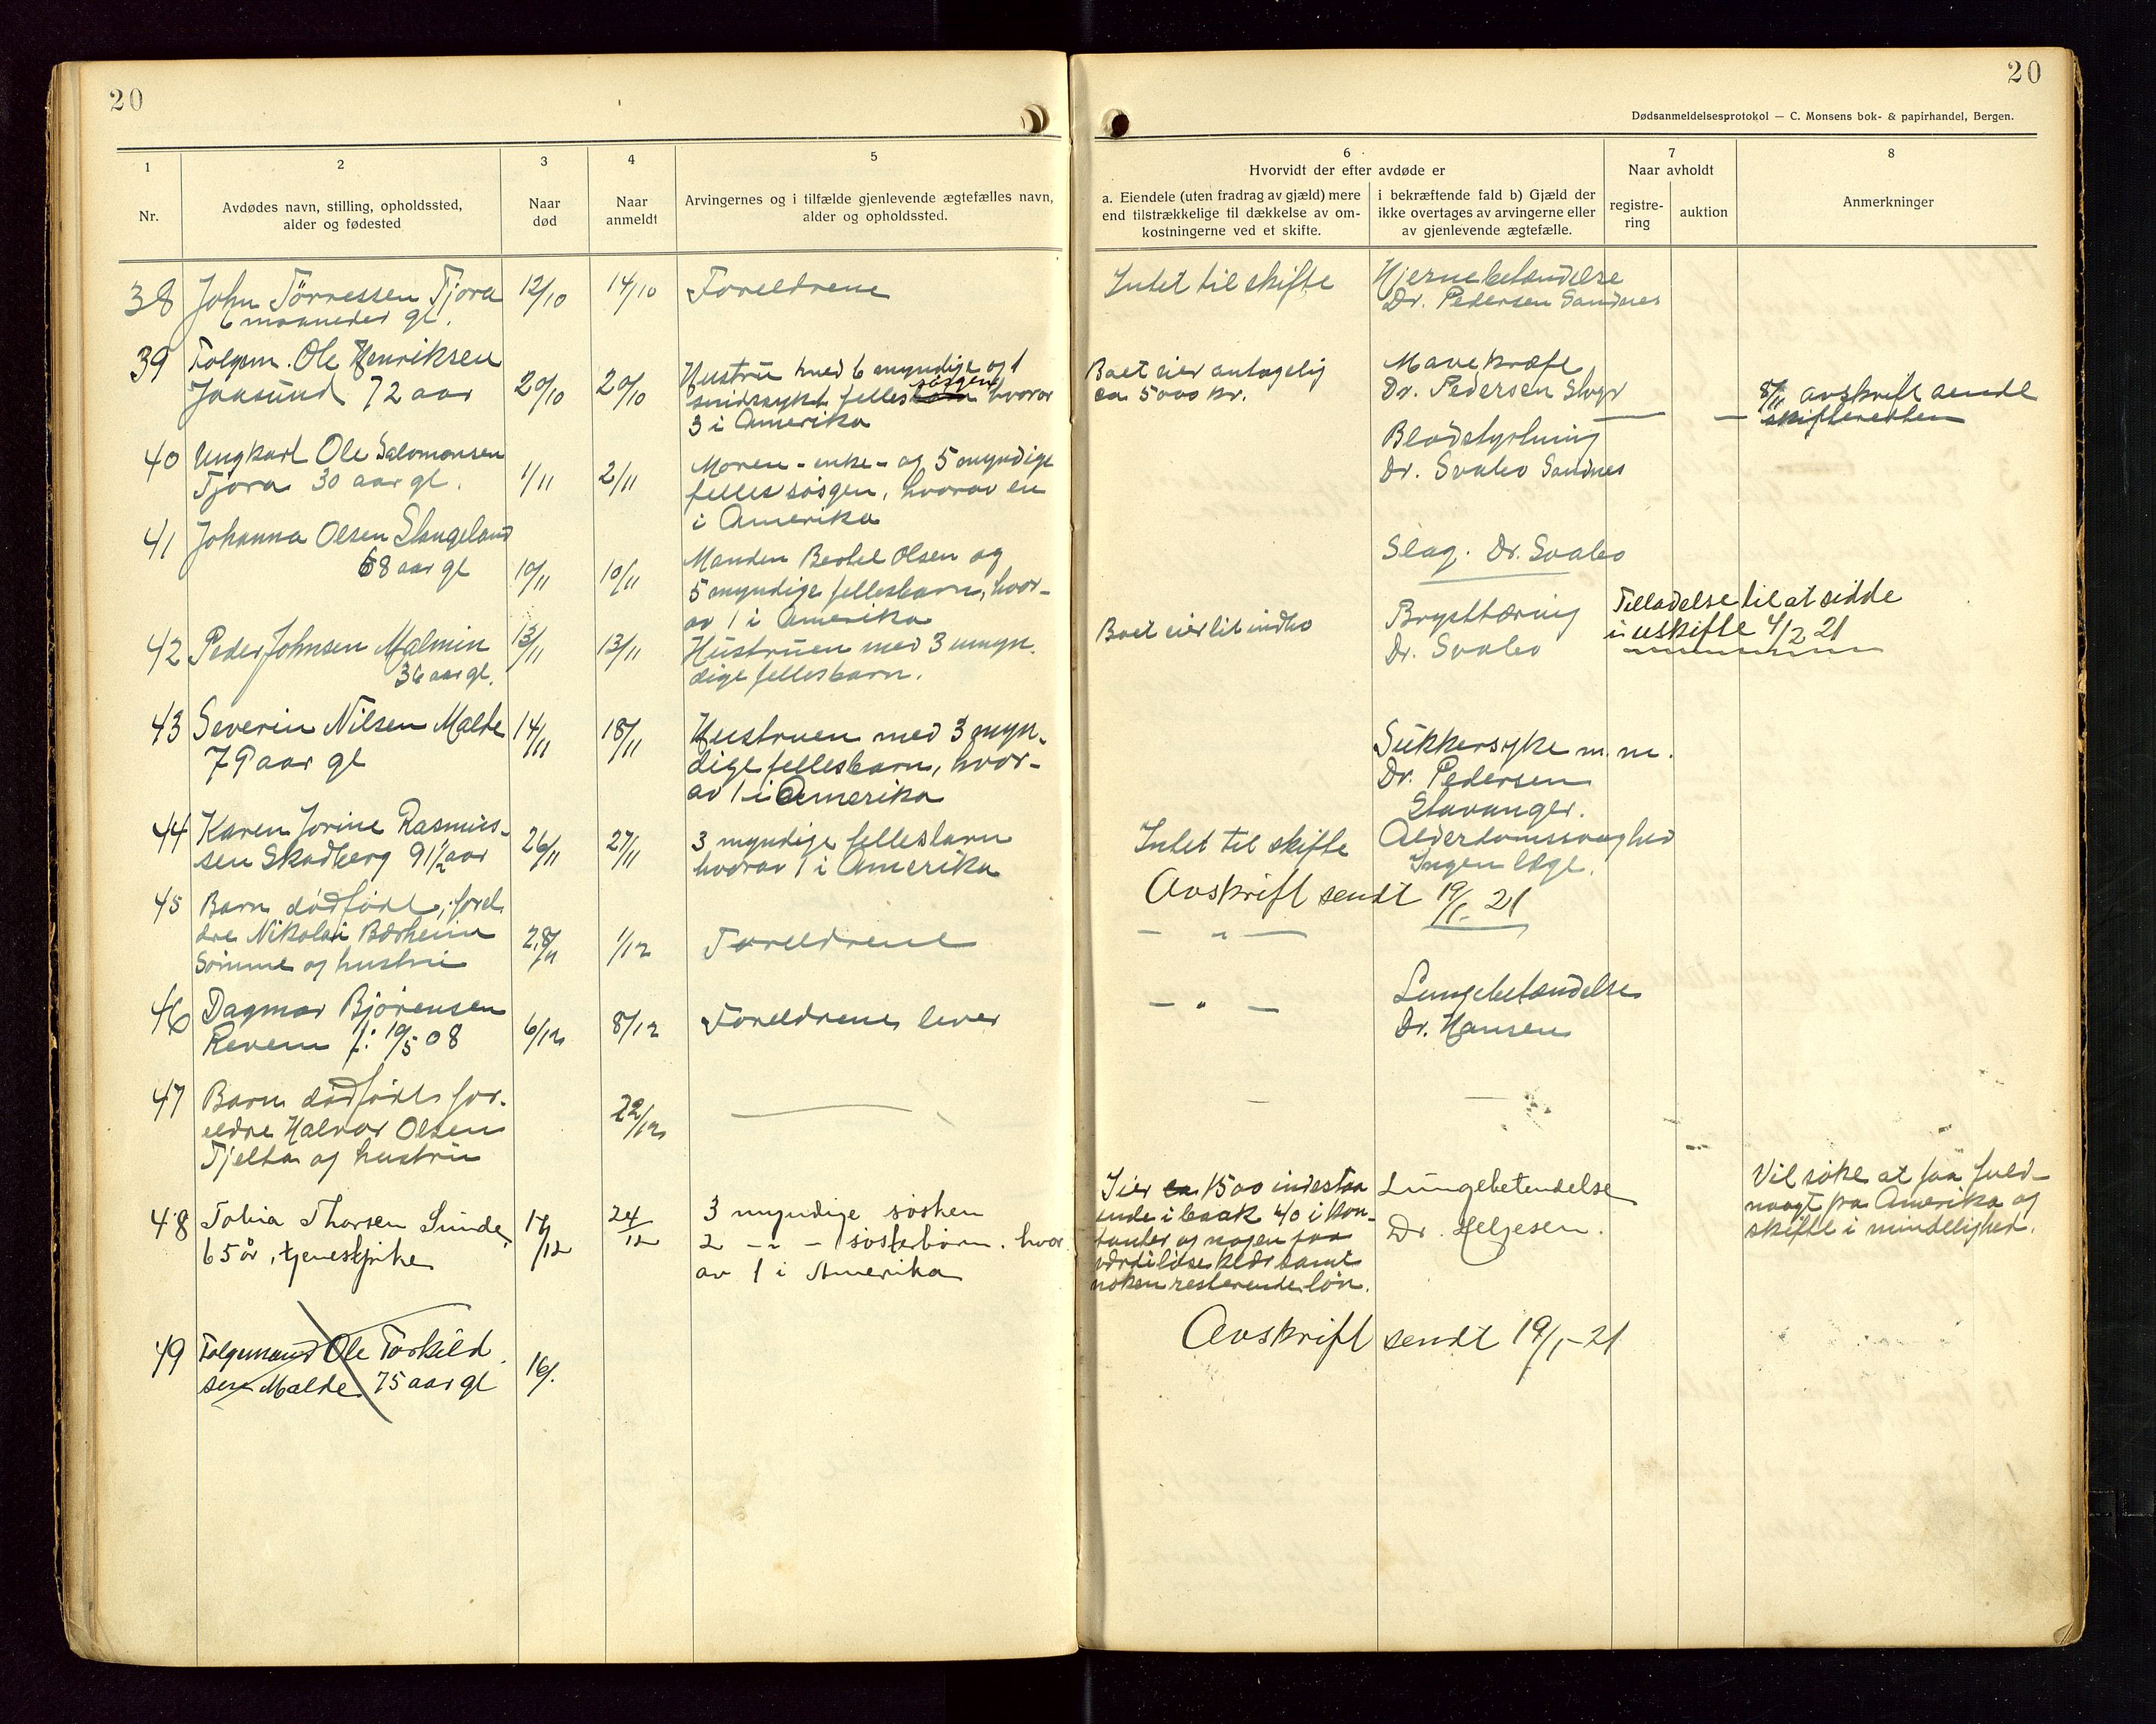 20
1
2
3
4
5
Nr.
Avdødes navn, stilling, opholdssted,
alder og fødested
Naar
død
Naar
anmeldt
Arvingernes og i tilfælde gjenlevende ægtefælles navn,
alder og opholdssted.
38
John Törressen Tjora
6 maaneder gl.
12/10
14/10
Foreldrene
39
Folgem. Ole Henriksen
Jaasund 72 aar
20/10
20/10
Hustru med 6 myndige og 1
sindssykt felles søsgen hvorav
3 i Amerika
40
Ungkarl Ole Salomonsen
Tjora 30 aar gl.
1/11
2/11
Moren - enke - og 5 myndige
felles søsgen, hvorav en
i Amerika
41
Johanna Olsen Stangeland
68 aar gl
10/11
10/11
Manden Bertel Olsen og
5 myndige fellesbarn, hvor-
av 1 i Amerika
42
Peder Johnsen Malmin
36 aar gl.
13/11
13/11
Hustruen med 3 umyn.
dige fellesbarn.
43
Severin Nilsen Malde
79 aar gl
14/11
18/11
Hustruen med 3 myn-
dige fellesbarn, hvor-
av 1 i Amerika
44
Karen Jorine Rasmus-
sen Skadberg 91½ aar
26/11
27/11
3 myndige fellesbarn
hvorav 1 i Amerika
45
Barn dødfødt, forel
dre Nikolai Bærheim
Sømme og hustru
28/11
1/12
Foreldrene
46
Dagmar Bjørensen
Revem f: 19/5 08
6/12
8/12
Foreldrene lever
47
Barn dødfødt for-
eldre Halvor Olsen
Tjelta og hustru
22/12
48
Tobia Thorsen Sunde,
65 år, tjenestpike
17/12
24/12
3 myndige søsken
2 - " - søsterbørn. hvor
av 1 i Amerika
49
Folgemand Ole Torkild
sen Malde 75 aar gl
16/.
20
Dødsanmeldelsesprotokol — C. Monsens bok- & papirhandel, Bergen.
6
Hvorvidt der efter avdøde er
7
Naar avholdt
8
a. Eiendele (uten fradrag av gjæld) mere
end tilstrækkelige til dækkelse av om-
kostningerne ved et skifte.
i bekræftende fald b) Gjæld der
ikke overtages av arvingerne eller
av gjenlevende ægtefælle.
registre-
ring
auktion
Anmerkninger
Intet til skifte
Hjernebetændelse
Dr. Pedersen Sandnes
Boet eier antagelig
ca 5000 kr.
Mavekræft
Dr. Pedersen Stvgr
8/11 avskrift sendt
skifteretten
Blodstyrtning
Dr. Svabo Sandnes
Slag. Dr. Svabo
Boet eier lit indbo
Brysttæring
Dr. Svabo
Tilladelse til at sidde
i uskifte 4/2 21
Sukkersyke m. m.
Dr. Pedersen
Stavanger.
Intet til skifte
Alderdomssvaghed
Ingen læge.
Avskrift sendt 19/1. 21
— " —
— " —
Lungebetændelse
Dr. Hansen
—
—
Eier ca 1500 indestaa
ende i bank 40 i kon-
tanter og nogen faa
værdiløse klær samt
noken resterende løn.
Lungebetendelse
Dr. Helgesen.
Vil søke at faa fuld-
magt fra Amerika og
skifte i mindelighed.
Avskrift sendt 19/1-21